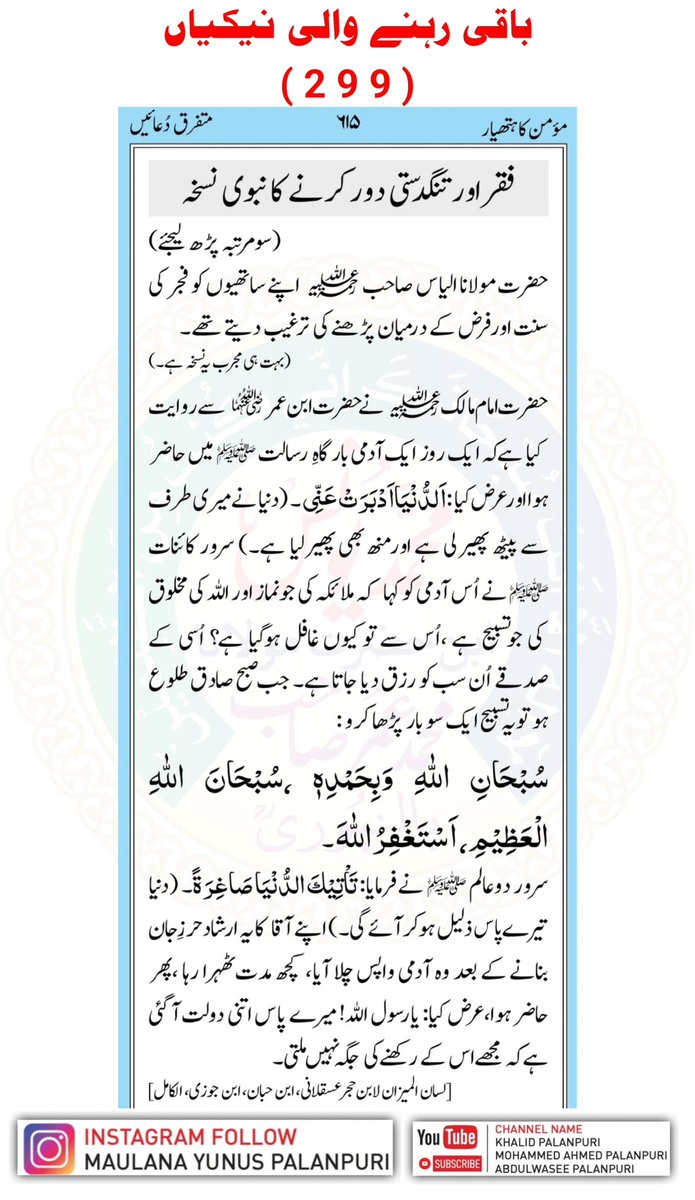 باقی رہنے والی نیکیاں
(299)
مؤمن کا ہتھیار ۶۱۵ متفرق دُعائیں
فقر اور تنگدستی دور کرنے کا نبوی نسخہ
(سو مرتبہ پڑھ لیجئے)
حضرت مولانا الیاس صاحب رحمۃ اللہ علیہ اپنے ساتھیوں کو فجر کی
سنت اور فرض کے درمیان پڑھنے کی ترغیب دیتے تھے۔
(بہت ہی مجرب یہ نسخہ ہے۔)
حضرت امام مالک رحمۃ اللہ علیہ نے حضرت ابن عمر رضی اللہ عنہما سے روایت
کیا ہے کہ ایک روز ایک آدمی بارگاہِ رسالت ﷺ میں حاضر
ہوا اور عرض کیا: اَلدُّنْيَا اَدْبَرَتْ عَنِّى۔ (دنیا نے میری طرف
سے پیٹھ پھیر لی ہے اور منھ بھی پھیر لیا ہے۔) سرور کائنات
ﷺ نے اُس آدمی کو کہا کہ ملائکہ کی جو نماز اور اللہ کی مخلوق
کی جو تسبیح ہے، اُس سے تو کیوں غافل ہو گیا ہے؟ اُسی کے
صدقے اُن سب کو رزق دیا جاتا ہے۔ جب صبح صادق طلوع
ہو تو یہ تسبیح ایک سو بار پڑھا کرو:
سُبْحَانِ اللهِ وَبِحَمْدِهٖ، سُبْحَانَ اللهِ
الْعَظِيْمِ، اَسْتَغْفِرُ اللهَ۔
سرور دو عالم ﷺ نے فرمایا: تَأْتِيْكَ الدُّنْيَا صَاغِرَةً۔ (دنیا
تیرے پاس ذلیل ہو کر آئے گی۔) اپنے آقا کا یہ ارشاد حرزِ جان
بنانے کے بعد وہ آدمی واپس چلا آیا، کچھ مدت ٹھہرا رہا، پھر
حاضر ہوا، عرض کیا: یا رسول اللہ! میرے پاس اتنی دولت آ گئی
ہے کہ مجھے اس کے رکھنے کی جگہ نہیں ملتی۔
[لسان المیزان لابن حجر عسقلانی، ابن حبان، ابن جوزی، الکامل]
INSTAGRAM FOLLOW
MAULANA YUNUS PALANPURI
You Tube
SUBSCRIBE
CHANNEL NAME
KHALID PALANPURI
MOHAMMED AHMED PALANPURI
ABDULWASEE PALANPURI